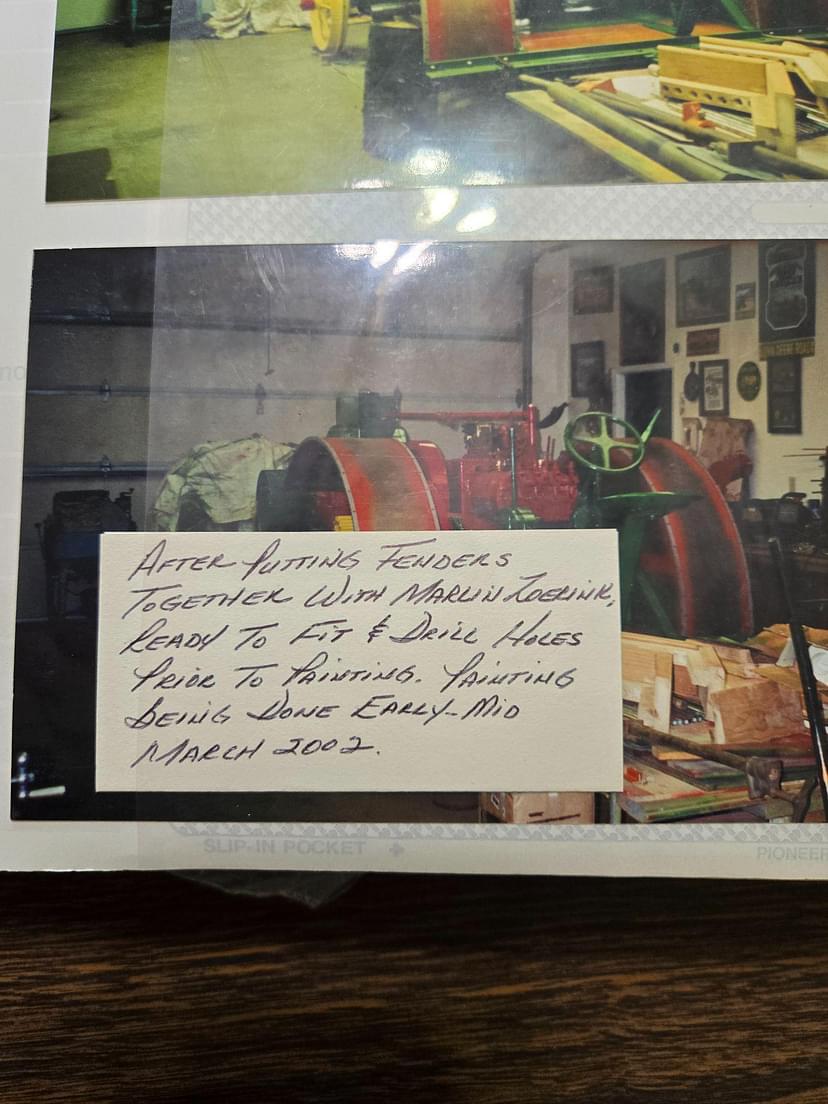 JOHN DEERE ROAD
AFTER PUTTING FENDERS
TOGETHER WITH MARLIN ZOERINK,
READY TO FIT & DRILL HOLES
PRIOR TO PAINTING. PAINTING
BEING DONE EARLY-MID
MARCH 2002.
SLIP-IN POCKET
PIONEER